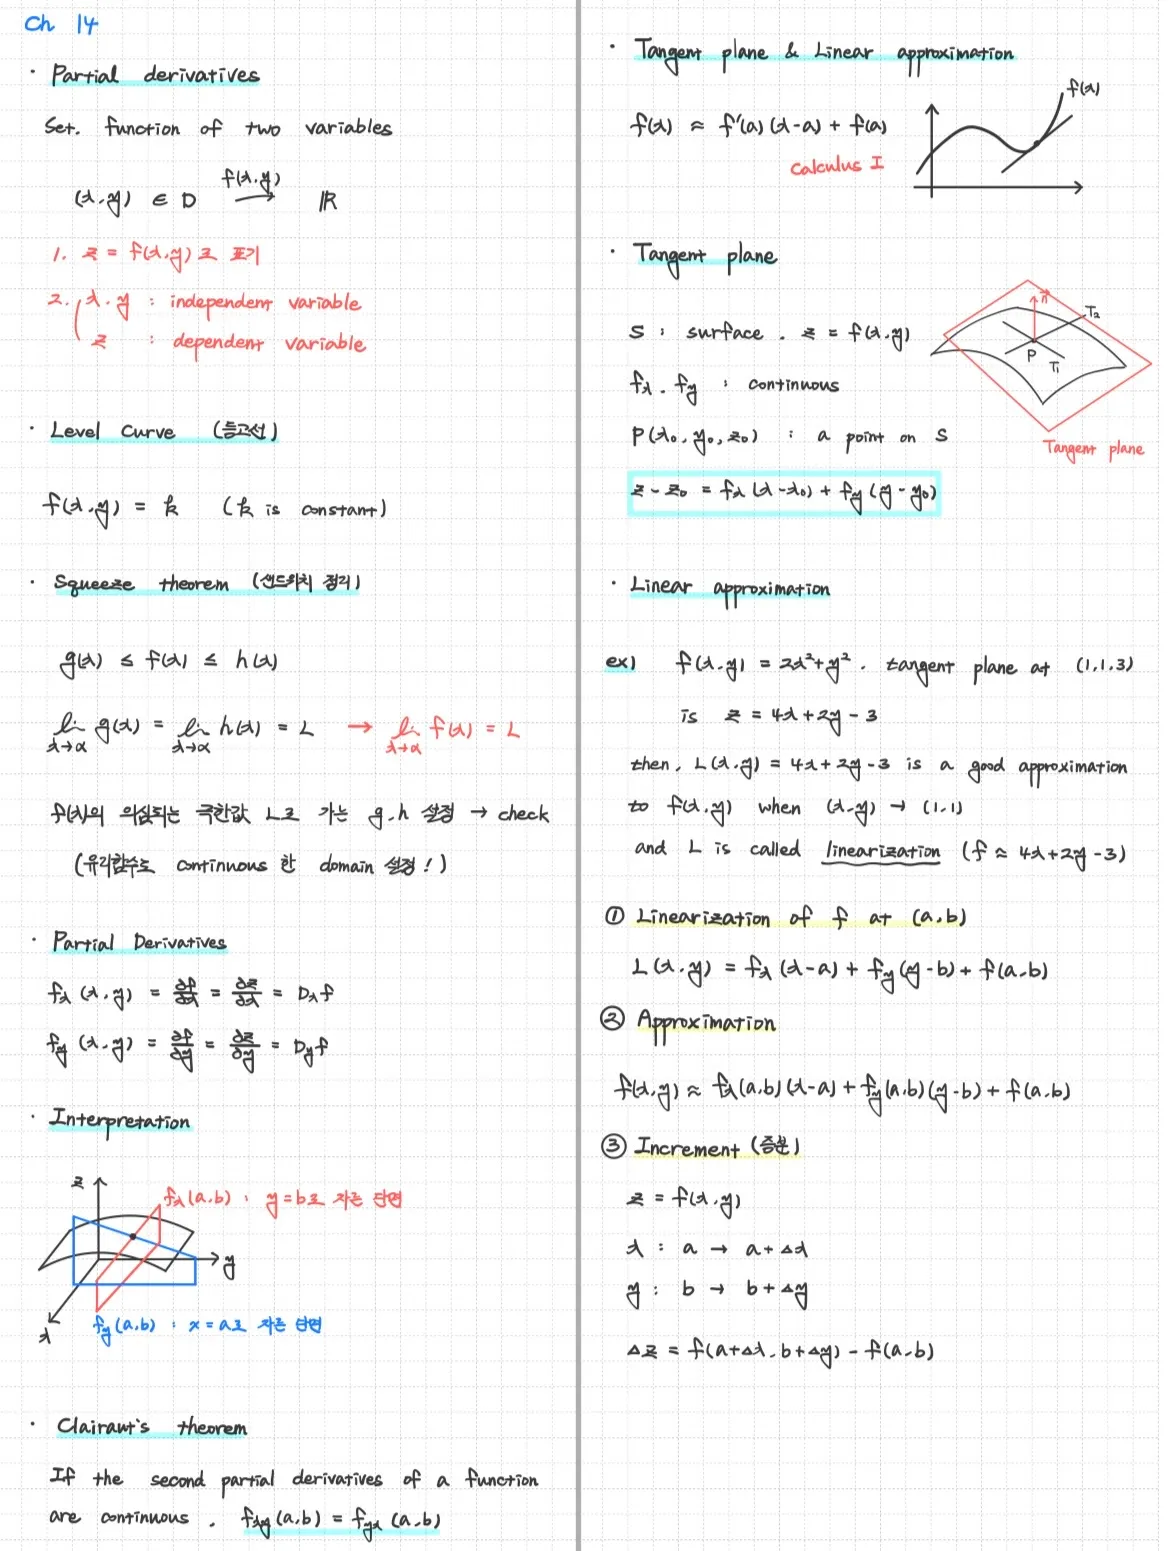 Ch 14
· Partial derivatives
Set. function of two variables
(x.y) ∈ D f(x.y) → ℝ
1. z = f(x.y)로 표기
2. x.y : independent variable
z : dependent variable
· Level Curve (등고선)
f(x.y) = k (k is constant)
· Squeeze theorem (샌드위치 정리)
g(x) ≤ f(x) ≤ h(x)
lim x→α g(x) = lim x→α h(x) = L → lim x→α f(x) = L
f(x)의 의심되는 극한값 L로 가는 g.h 설정 → check
(유리함수도 continuous 한 domain 설정!)
· Partial Derivatives
fx (x.y) = ∂f/∂x = ∂z/∂x = Dxf
fy (x.y) = ∂f/∂y = ∂z/∂y = Dyf
· Interpretation
z
fx(a.b) : y=b로 자른 단면
y
x
fy(a.b) : x=a로 자른 단면
· Clairaut's theorem
If the second partial derivatives of a function
are continuous . fxy(a.b) = fyx (a.b)
· Tangent plane & Linear approximation
f(x)
f(x) ≈ f'(a)(x-a) + f(a)
Calculus I
· Tangent plane
n⃗
T₂
P
T₁
S : surface . z = f(x.y)
fx . fy : continuous
P(x₀.y₀.z₀) : a point on S
Tangent plane
z - z₀ = fx(x-x₀) + fy(y-y₀)
· Linear approximation
ex) f(x.y) = 2x²+y² . tangent plane at (1.1.3)
is z = 4x+2y-3
then, L(x.y) = 4x+2y-3 is a good approximation
to f(x.y) when (x.y) → (1.1)
and L is called linearization (f ≈ 4x+2y-3)
① Linearization of f at (a.b)
L(x.y) = fx(x-a) + fy(y-b) + f(a.b)
② Approximation
f(x.y) ≈ fx(a.b)(x-a) + fy(a.b)(y-b) + f(a.b)
③ Increment (증분)
z = f(x.y)
x : a → a+△x
y : b → b+△y
△z = f(a+△x.b+△y) - f(a.b)